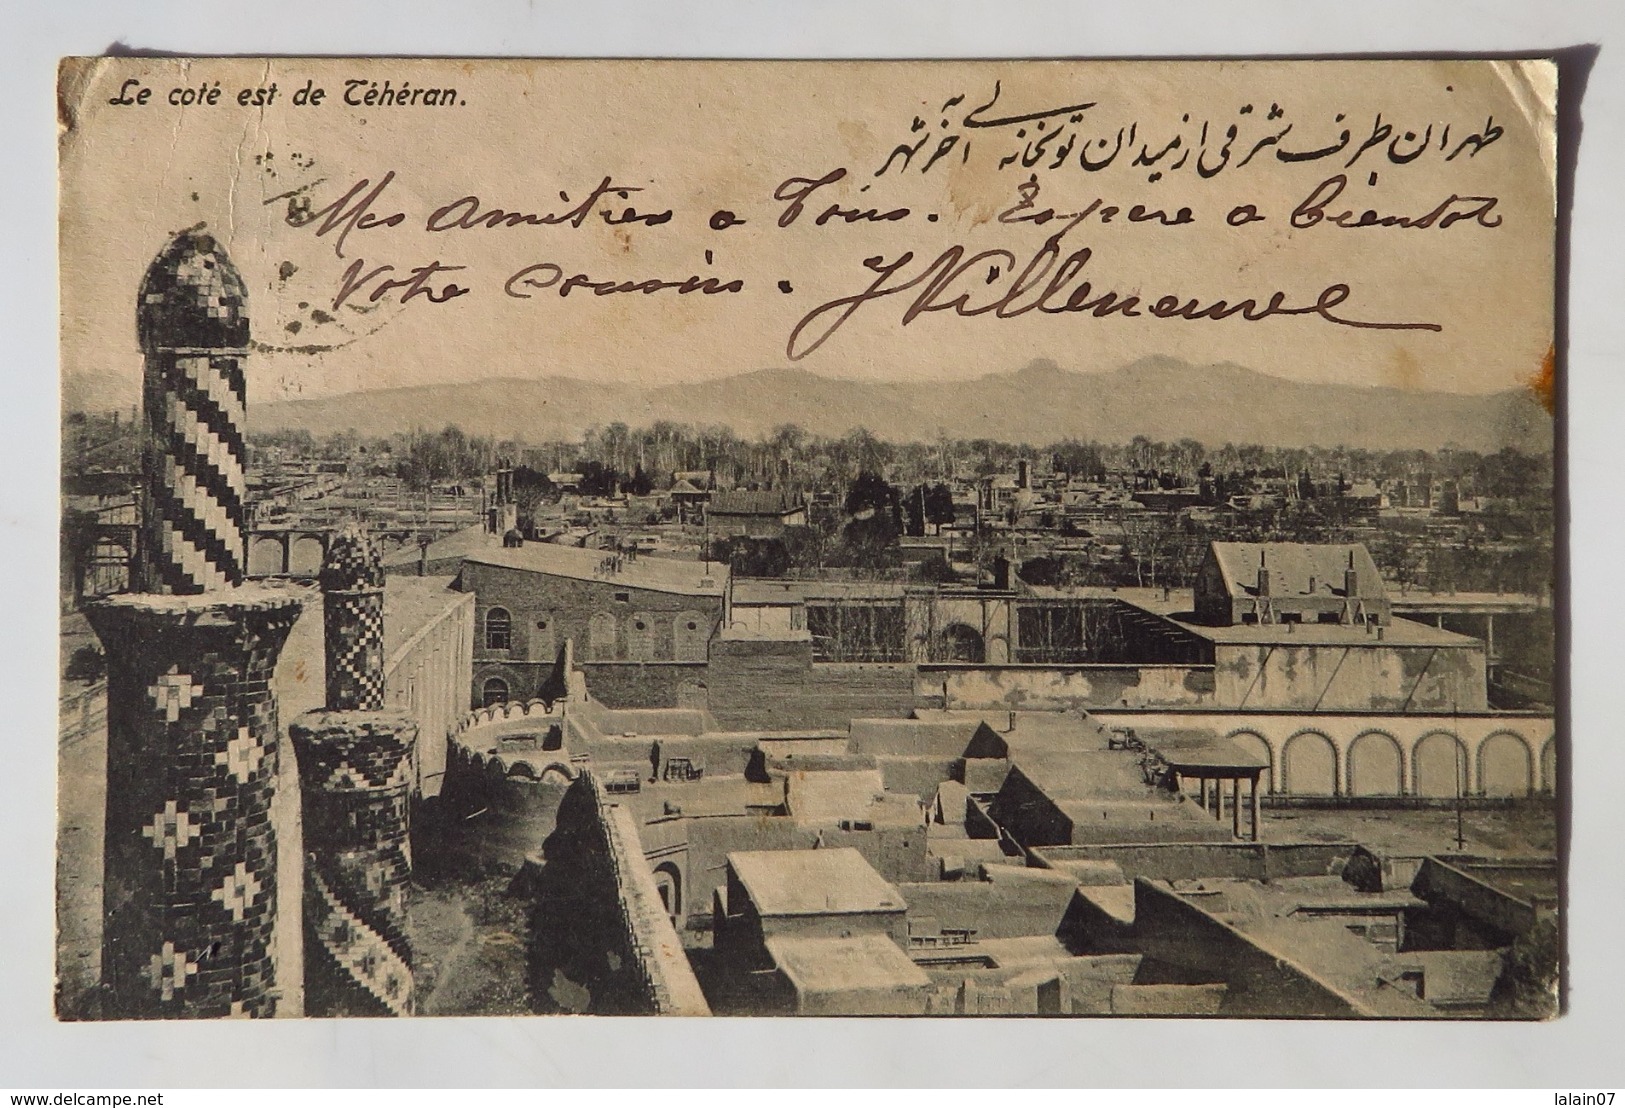 Le coté est de Téhéran.
طهران طرف شرقی از میدان توپخانه الی به آخر شهر
Mes Amitiés a Tous. Espere a bientot
Votre cousin. J Villeneuve
www.delcampe.net
lalain07